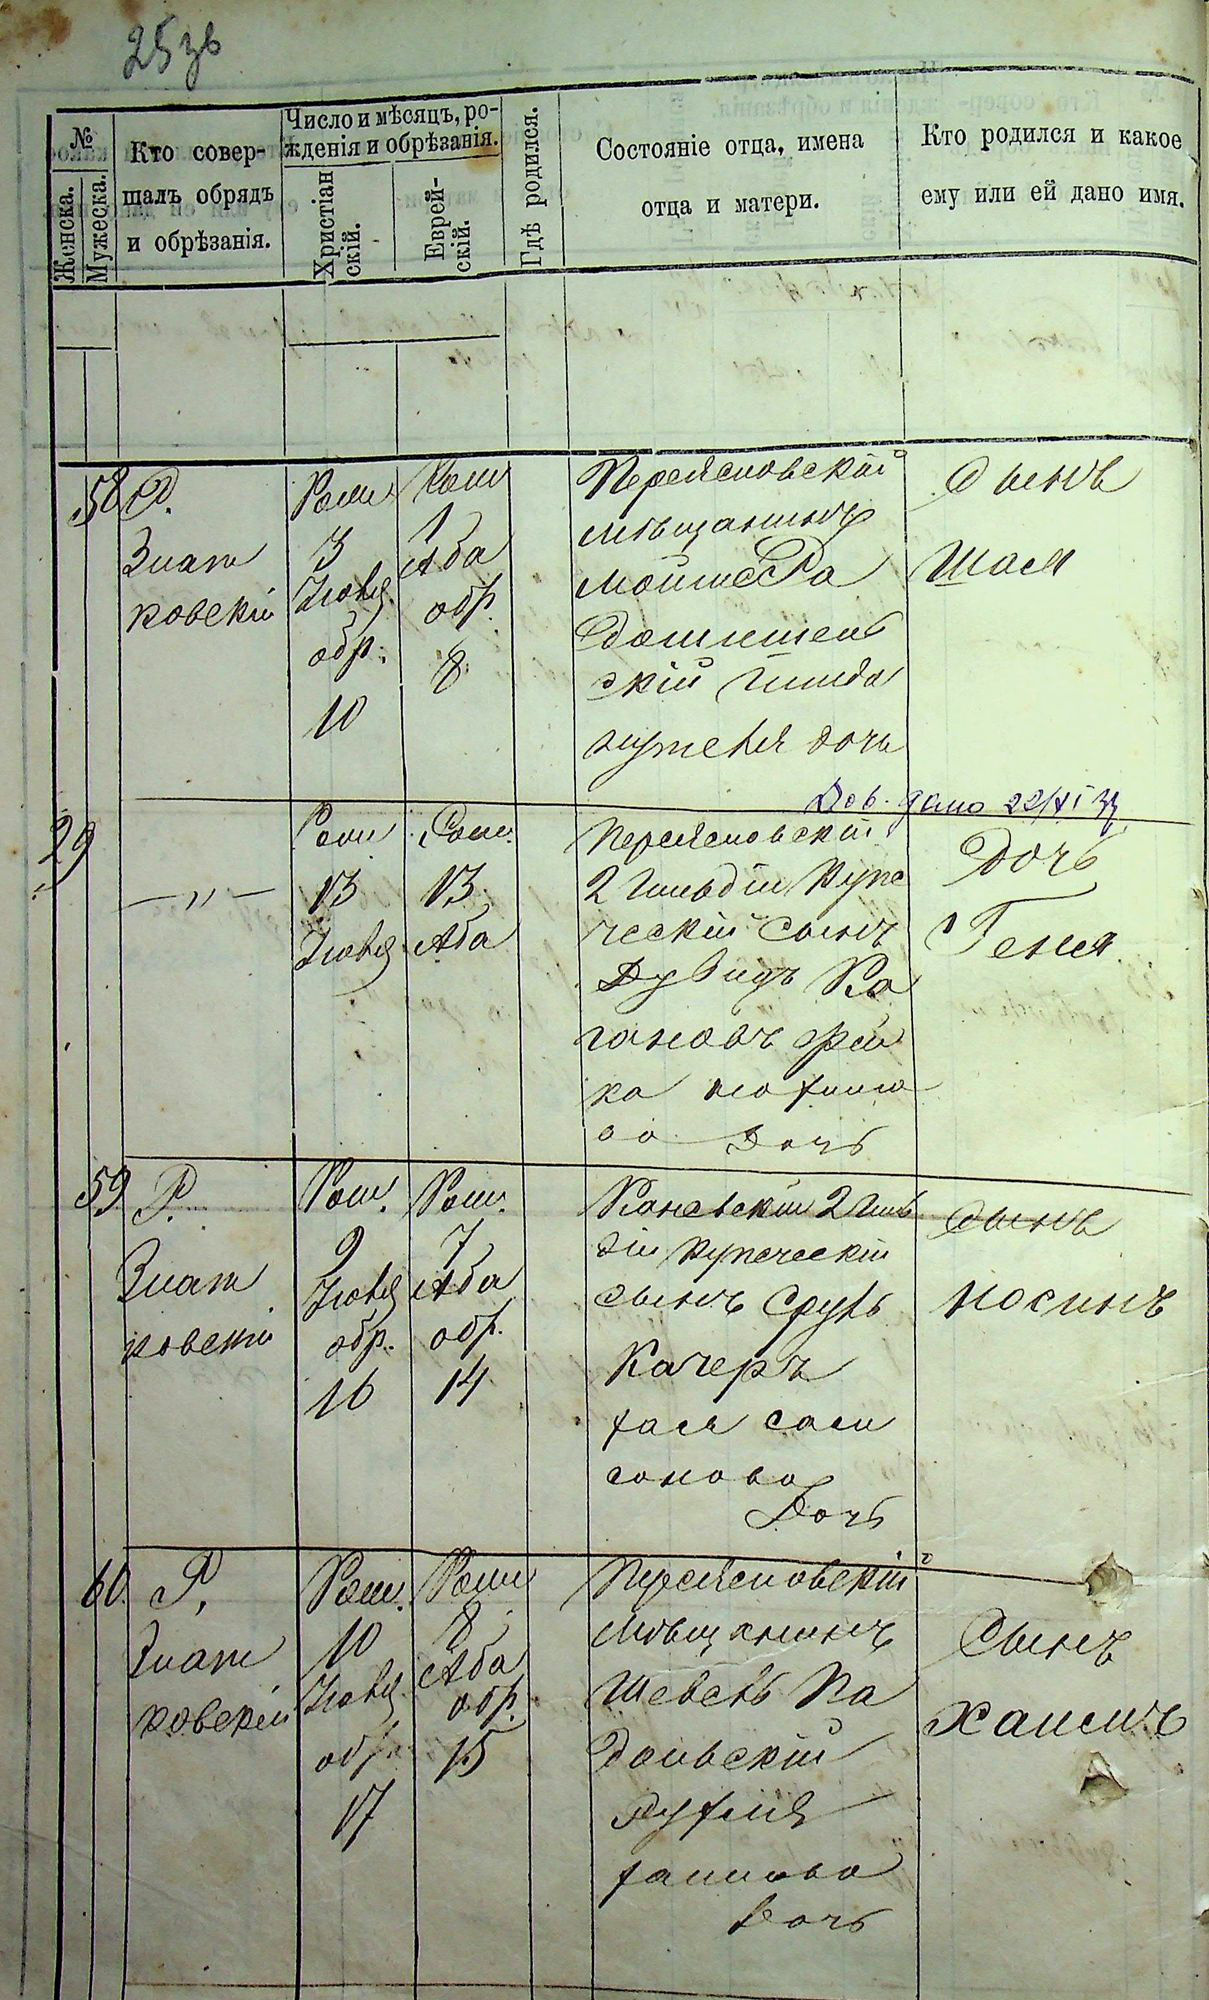 25 зв
№
Женска.
Мужеска.
Кто совер-
шалъ обрядъ
и обрѣзанія.
Число и мѣсяцъ, ро-
жденія и обрѣзанія.
Христіан
скій.
Еврей-
скій.
Гдѣ родился.
Состояніе отца, имена
отца и матери.
Кто родился и какое
ему или ей дано имя.
58
Р.
Злат
ковскій
3
Іюля
обр.
10
1
Аба
обр.
8
Переяславскій
мѣщанинъ
Мойше Ра
скій
дочь
Сынъ
Шая
дано 22/XI
29
— " —
13
Іюля
13
Аба
Переяславскій
2 Гильдіи Купе
ческій сынъ
Дувидъ Ка
гановъ
ка
ва Дочь
Дочь
Геня
59
Р.
Злат
ковскій
9
Іюля
обр.
16
7
Аба
обр.
14
Каневскій 2 Гиль
діи Купеческій
сынъ Сруль
Качеръ
Хася Сам
сонова
Дочь
Сынъ
Носинъ
60
Р.
Злат
ковскій
10
Іюля
обр.
17
8
Аба
обр.
15
Переяславскій
мѣщанинъ
Шевель По
дольскій
Рухля
Хаимова
Дочь
Сынъ
Хаимъ